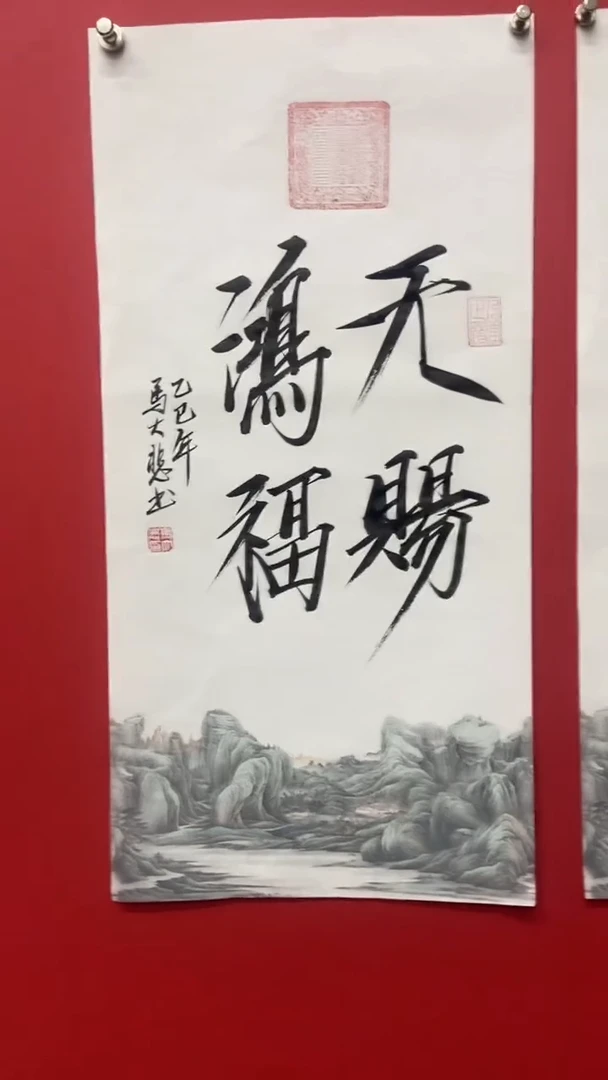 天賜
鴻福
乙巳年
馬大书